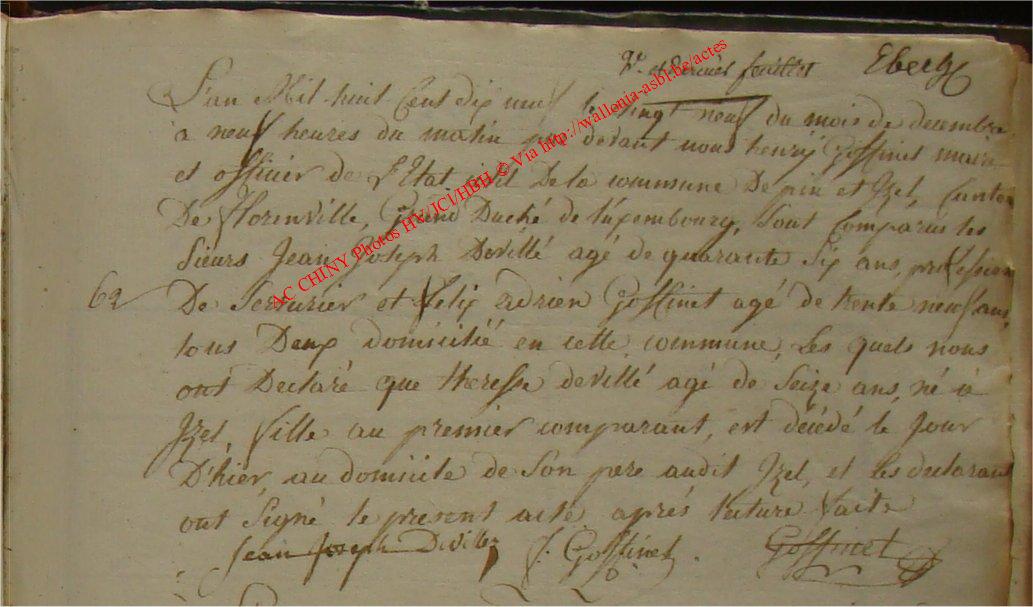 et dernier feuillet Eberhz
L'an Mil huit Cent dix neuf le vingt neuf du mois de decembre
a neuf heures du matin par devant nous henry Goffinet maire
et officier de L'Etat civil De la commune De pin et Izel, Canton
De Florenville, Grand Duché de Luxembourg, Sont Comparus les
Sieurs Jean Joseph Devillé agé de quarante Six ans, profession
62 De Serrurier et Felix adrien Goffinet agé de trente neuf ans,
tous Deux domicilié en cette commune, Les quels nous
ont Declaré que theresse devillé agé de Seize ans, né à
Izel, fille au premier comparant, est décédé le Jour
D'hier au domicile de Son pere audit Izel, et les declarant
ont Signé le present acte aprés lecture faite
Jean Joseph Devillez J. Goffinet. Goffinet
AC CHINY Photos HV/JCl/HBH © Via http://wallonia-asbl.be/actes